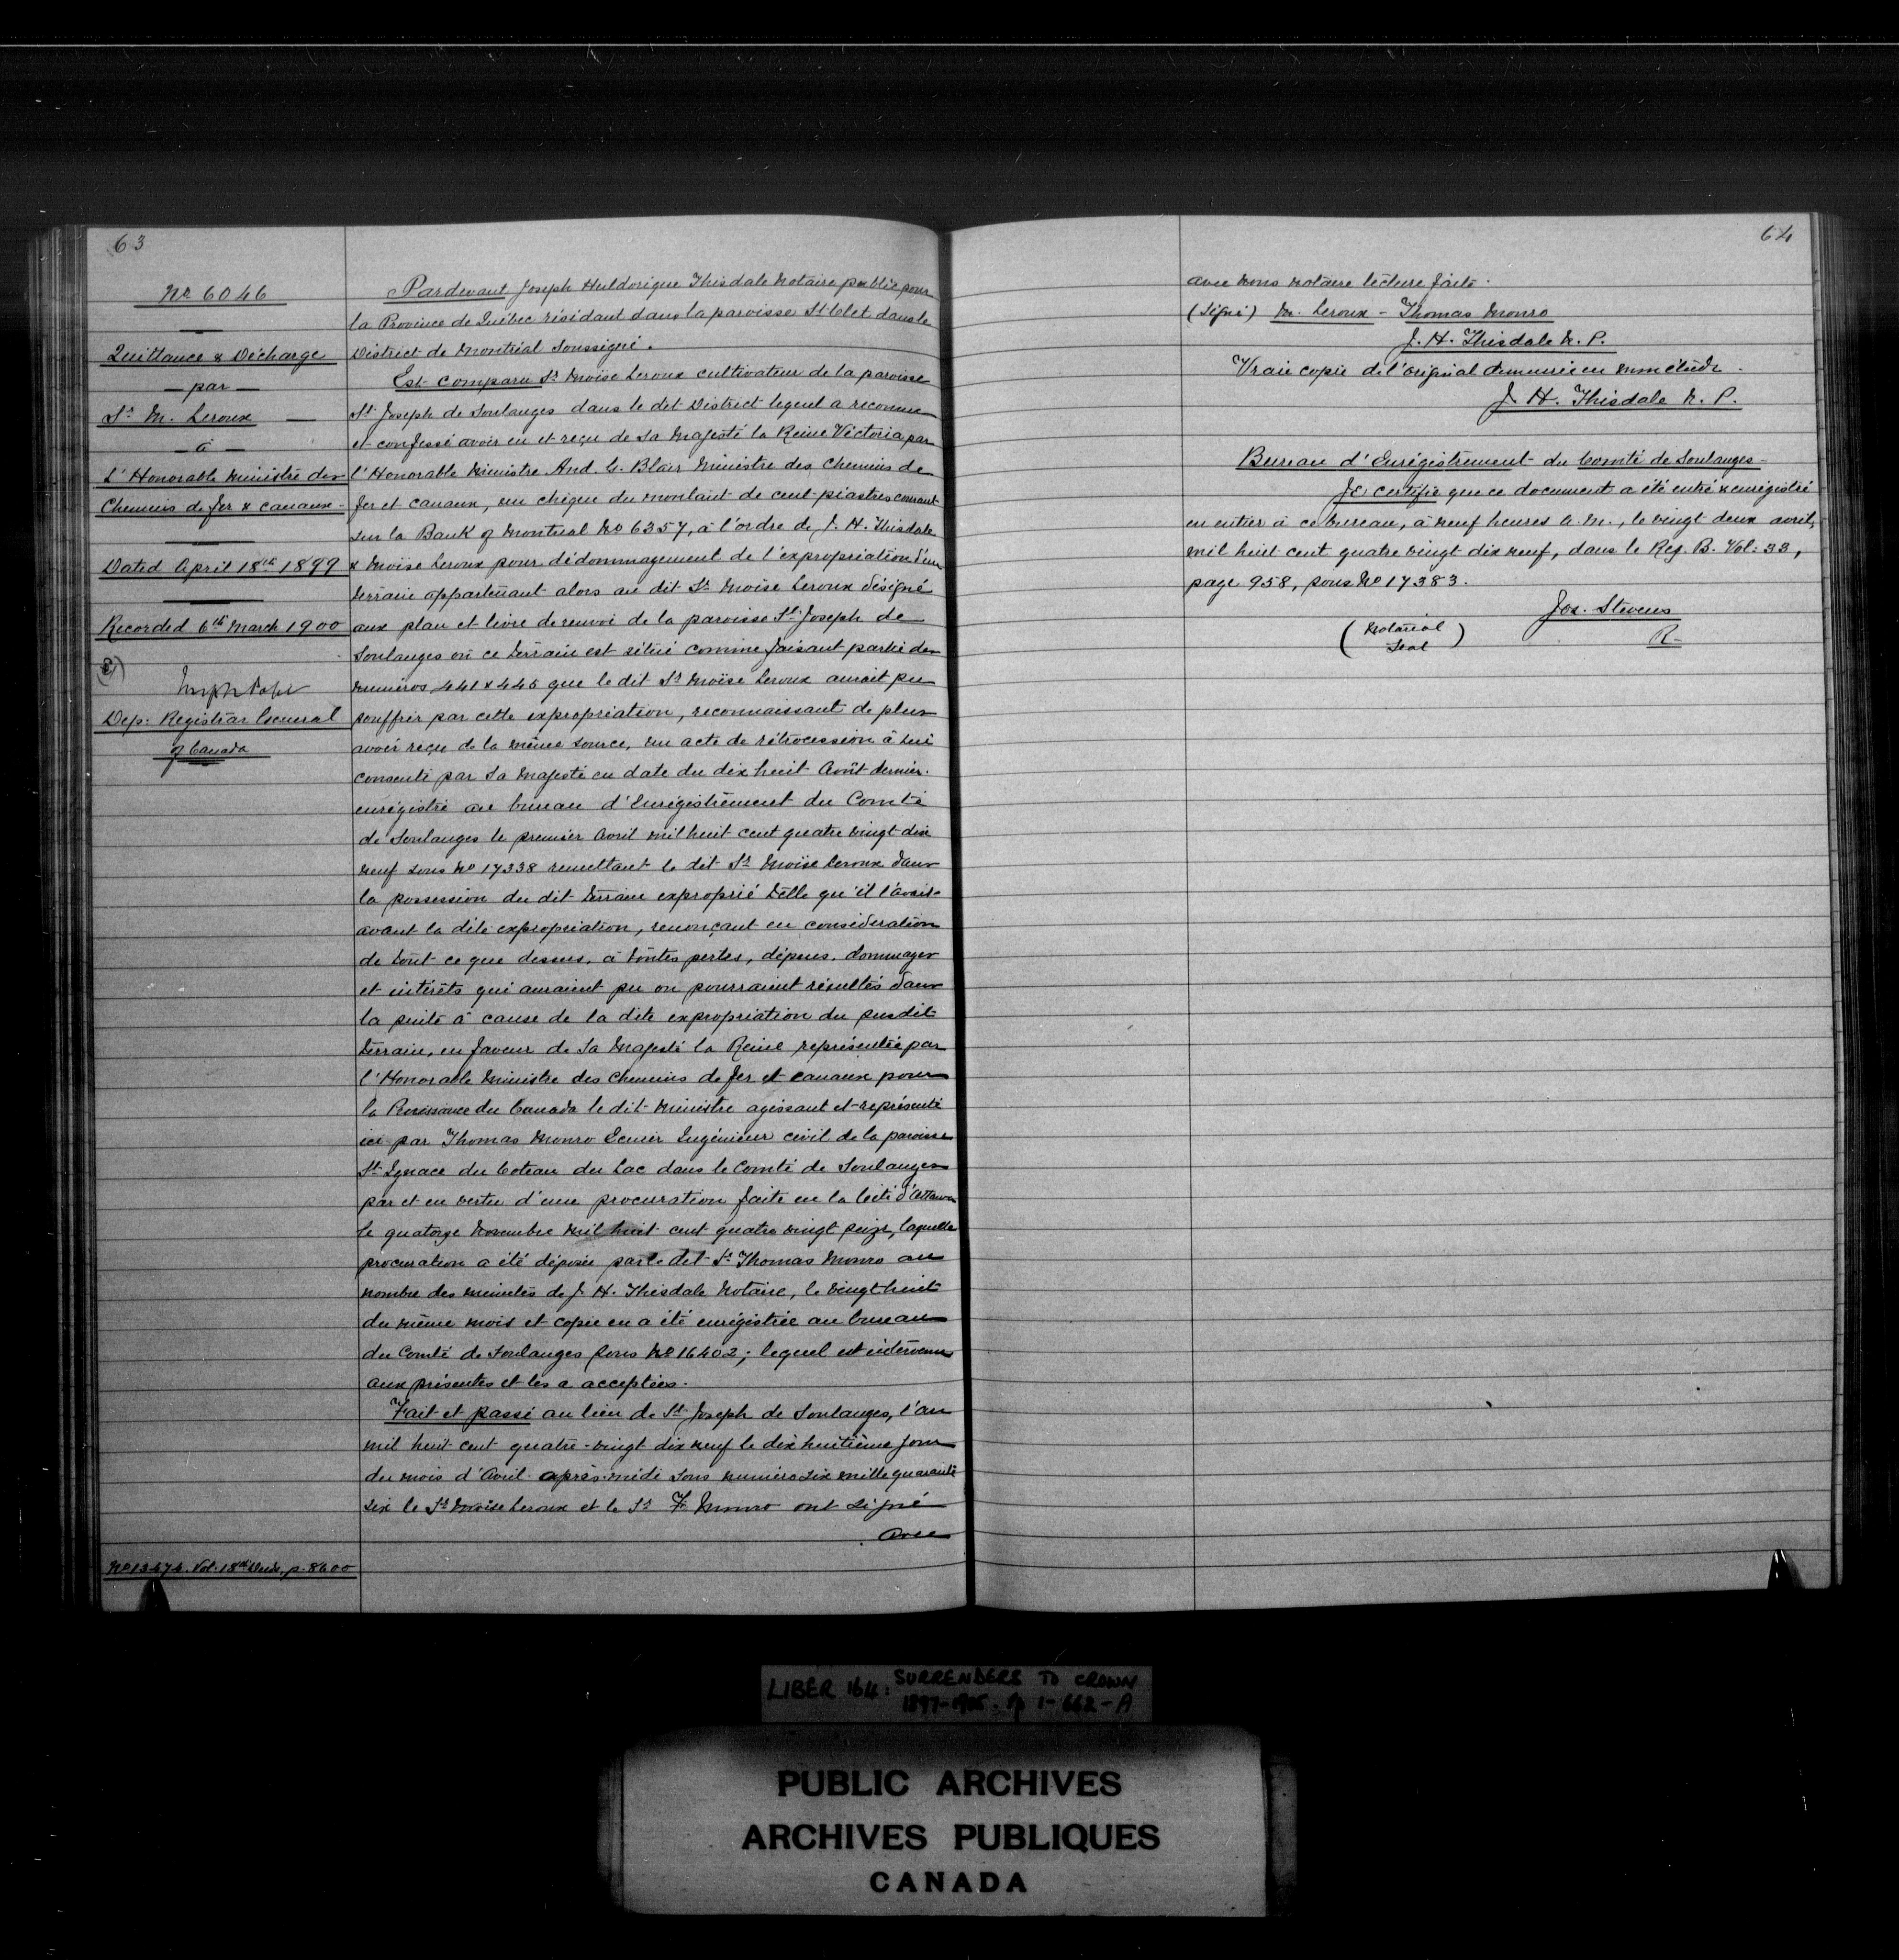 63
No 6046
Quittance & Décharge
par
Sr M. Leroux
à
L'Honorable Ministre des
Chemins de fer & canaux
Dated April 18th 1899
Recorded 6th March 1900
Dep. Registrar General
of Canada
No 13474. Vol. 18th p. 8600
Pardevant Joseph Huldorique Thisdale Notaire public pour
la Province de Québec résidant dans la paroisse St Clet dans le
District de Montréal Soussigné.
Est Comparu Sr Moïse Leroux cultivateur de la paroisse
St Joseph de Soulanges dans le dit District lequel a reconnu
et confessé avoir eu et reçu de Sa Majesté la Reine Victoria par
l'Honorable Ministre And. G. Blair Ministre des Chemins de
fer et canaux, un chèque du montant de cent piastres courant
sur la Bank of Montreal No 6357, à l'ordre de J. H. Thisdale
& Moïse Leroux pour dédommagement de l'expropriation d'un
terrain appartenant alors au dit Sr Moïse Leroux désigné
aux plan et livre de renvoi de la paroisse St Joseph de
Soulanges où ce terrain est situé comme faisant partie des
numéros 441 & 445 que le dit Sr Moïse Leroux aurait pu
souffrir par cette expropriation, reconnaissant de plus
avoir reçu de la même source, un acte de rétrocession à lui
consenti par Sa Majesté en date du dix huit Août dernier.
enrégistré au bureau d'Enrégistrement du Comté
de Soulanges le premier Avril mil huit cent quatre vingt dix
neuf sous No 17338 remettant le dit Sr Moïse Leroux dans
la possession du dit terrain exproprié telle qu'il l'avait
avant la dite expropriation, renonçant en considération
de tout ce que dessus, à toutes pertes, dépens, dommages
et intérêts qui auraient pu ou pourraient résultés dans
la suite à cause de la dite expropriation du susdit
terrain, en faveur de Sa Majesté la Reine représentée par
l'Honorable Ministre des Chemins de fer et canaux pour
la Puissance du Canada le dit Ministre agissant et représenté
ici par Thomas Monro Ecuier Ingénieur civil de la paroisse
St Ignace du Coteau du Lac dans le Comté de Soulanges
par et en vertu d'une procuration faite en la Cité d'Ottawa
le quatorze Novembre mil huit cent quatre vingt seize, laquelle
procuration a été déposée par le dit Sr Thomas Monro au
nombre des minutes de J. H. Thisdale Notaire, le vingt huit
du même mois et copie en a été enrégistrée au bureau
du Comté de Soulanges sous No 16402; lequel est intervenu
aux présentes et les a acceptées.
Fait et passé au lieu de St Joseph de Soulanges, l'an
mil huit cent quatre-vingt dix neuf le dix huitième jour
du mois d'Avril après-midi sous numéro six mille quarante
six le Sr Moïse Leroux et le Sr T. Monro ont signé
avec
64
avec nous notaire lecture faite.
(Signé) M. Leroux - Thomas Monro
J. H. Thisdale N. P.
Vraie copie de l'original demeuré en mon étude.
J. H. Thisdale N. P.
Bureau d'Enrégistrement du Comté de Soulanges
Je certifie que ce document a été entré & enrégistré
en entier à ce bureau, à neuf heures A. M., le vingt deux avril,
mil huit cent quatre vingt dix neuf, dans le Reg. B. Vol: 33,
page 958, sous No 17383.
Jos. Stevens
R
(Notarial
Seal)
LIBER 164: SURRENDERS TO CROWN
1897-1905. Pp 1-662-A
PUBLIC ARCHIVES
ARCHIVES PUBLIQUES
CANADA